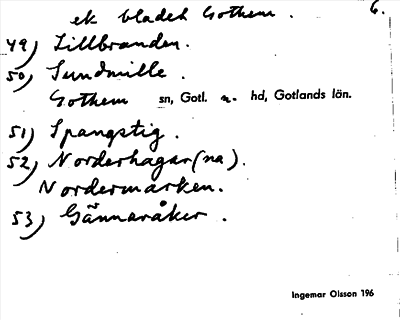 6.
ek bladet Gothem.
49) Lillbranden.
50) Sundmille.
Gothem sn, Gotl. n. hd, Gotlands län.
51) Spangstig.
52) Norderhagar(na).
Nordermarken.
53) Gännaråker.
Ingemar Olsson 196